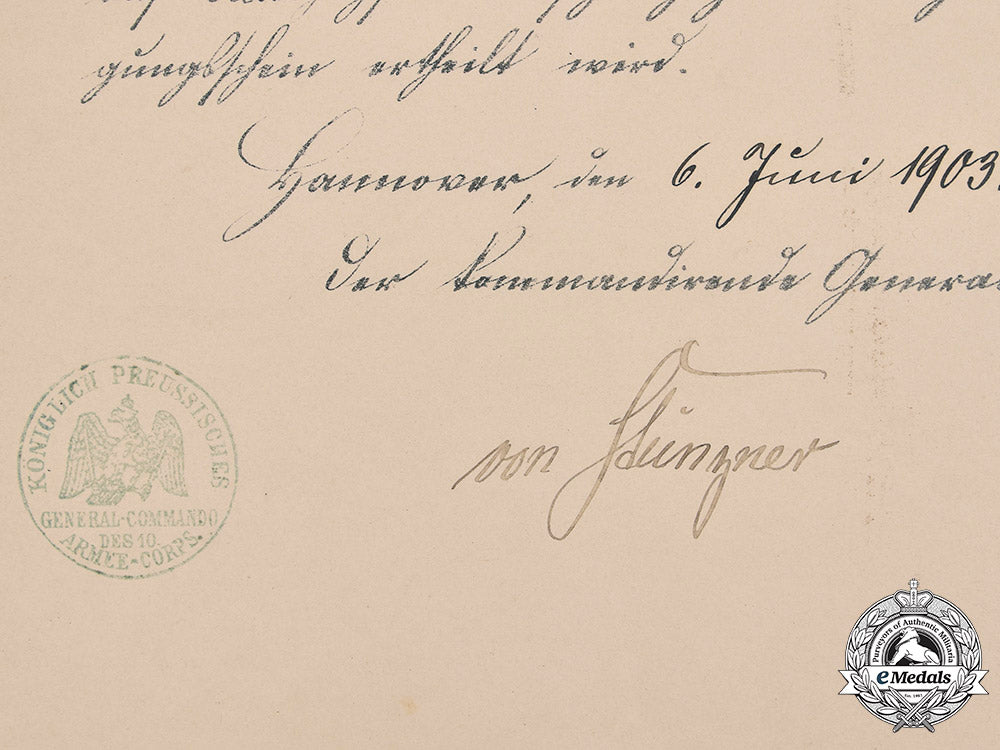 gungsschein ertheilt wird.
Hannover, den 6. Juni 1903.
Der kommandirende General
von Stünzner
KÖNIGLICH PREUSSISCHES
GENERAL-COMMANDO
DES 10.
ARMEE-CORPS.
Purveyors of Authentic Militaria
eMedals